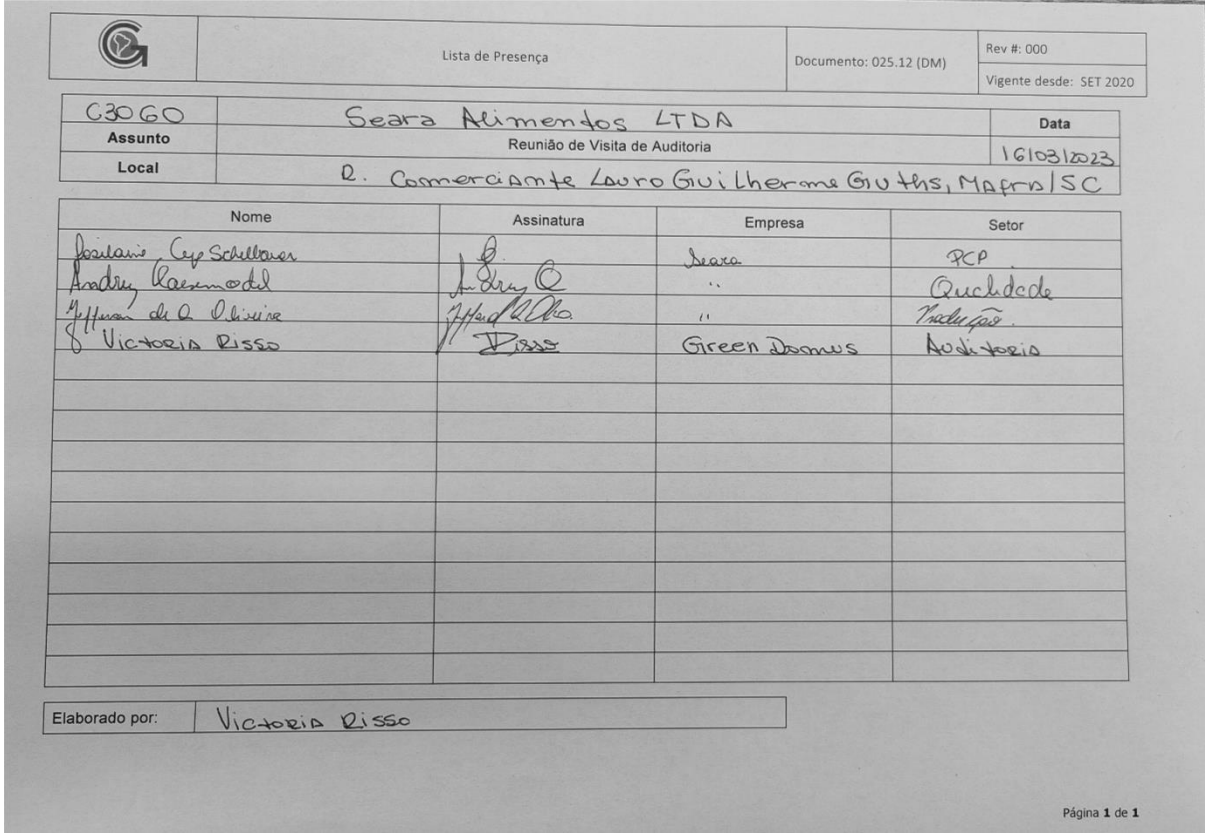 Lista de Presença
Documento: 025.12 (DM)
Rev #: 000
Vigente desde: SET 2020
C3060 Seara Alimentos LTDA Data
Assunto Reunião de Visita de Auditoria 16/03/2023
Local R. Comerciante Lauro Guilherme Guths, Mafra/SC
Nome Assinatura Empresa Setor
Schelbauer Seara PCP
Andrey Andrey Q " Qualidade
Jefferson de O Oliveira " Produção
Victoria Risso Risso Green Domus Auditoria
Elaborado por: Victoria Risso
Página 1 de 1